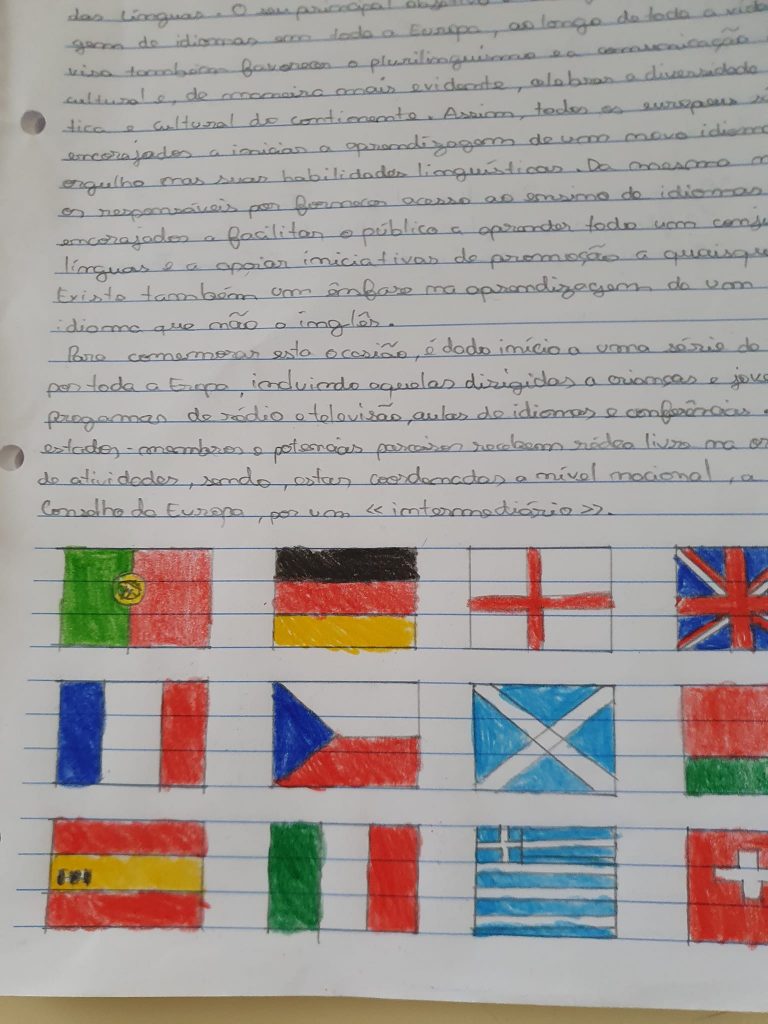 das Línguas. O seu principal
gem de idiomas em toda a Europa, ao longo de toda a vida
visa também favorecer o plurilinguismo e a comunicação
cultural e, de maneira mais evidente, celebrar a diversidade
tica e cultural do continente. Assim, todos os europeus s
encorajados a iniciar a aprendizagem de um novo idioma
orgulho nas suas habilidades linguísticas. Da mesma m
os responsáveis por fornecer acesso ao ensino de idiomas
encorajados a facilitar o público a aprender todo um conju
línguas e a apoiar iniciativas de promoção a quaisque
Existe também um ênfase na aprendizagem de um
idioma que não o inglês.
Para comemorar esta ocasião, é dado início a uma série de
por toda a Eropa, incluindo aquelas dirigidas a crianças e jove
progamas de rádio e televisão, aulas de idiomas e conferências
estados-membros e potenciais parceiros recebem rédea livre na or
de atividades, sendo, estas coordenadas a nível nacional, a
Conselho da Europa, por um « intermediário ».